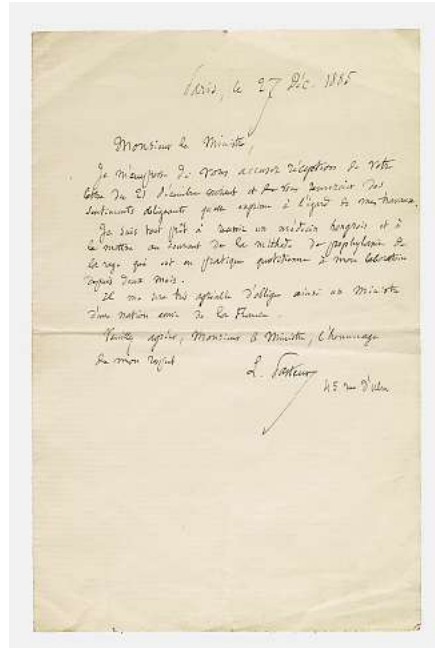 Paris, le 27 Déc. 1885
Monsieur le Ministre,
Je m'empresse de vous accuser réception de votre
lettre du 21 Décembre courant et de vous remercier des
sentiments obligeants qu'elle exprime à l'égard de mes travaux.
Je suis tout prêt à recevoir un médecin hongrois et à
le mettre au courant de la méthode de prophylaxie de
la rage qui est en pratique quotidienne à mon laboratoire
depuis deux mois.
Il me sera très agréable d'obliger ainsi un Ministre
d'une nation amie de la France.
Veuillez agréer, Monsieur le Ministre, l'hommage
de mon respect
L. Pasteur
45 rue d'Ulm